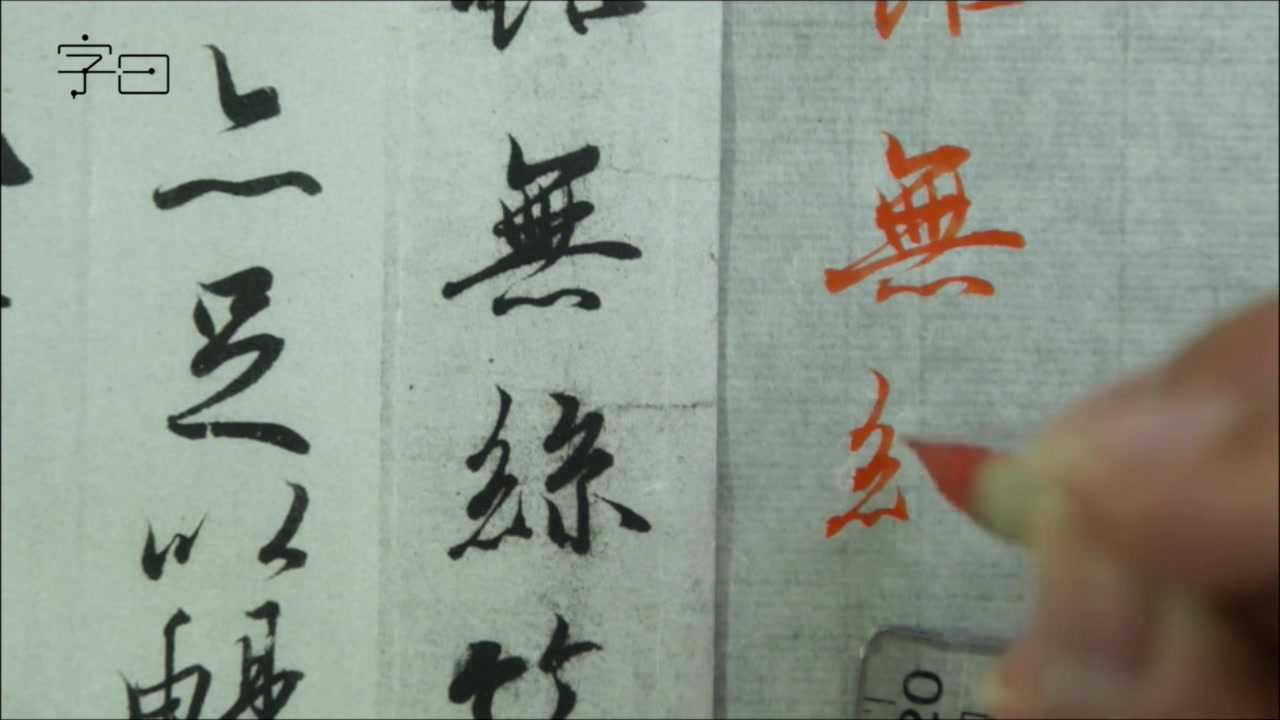 無糹
無絲竹
亦足以暢
字曰
20